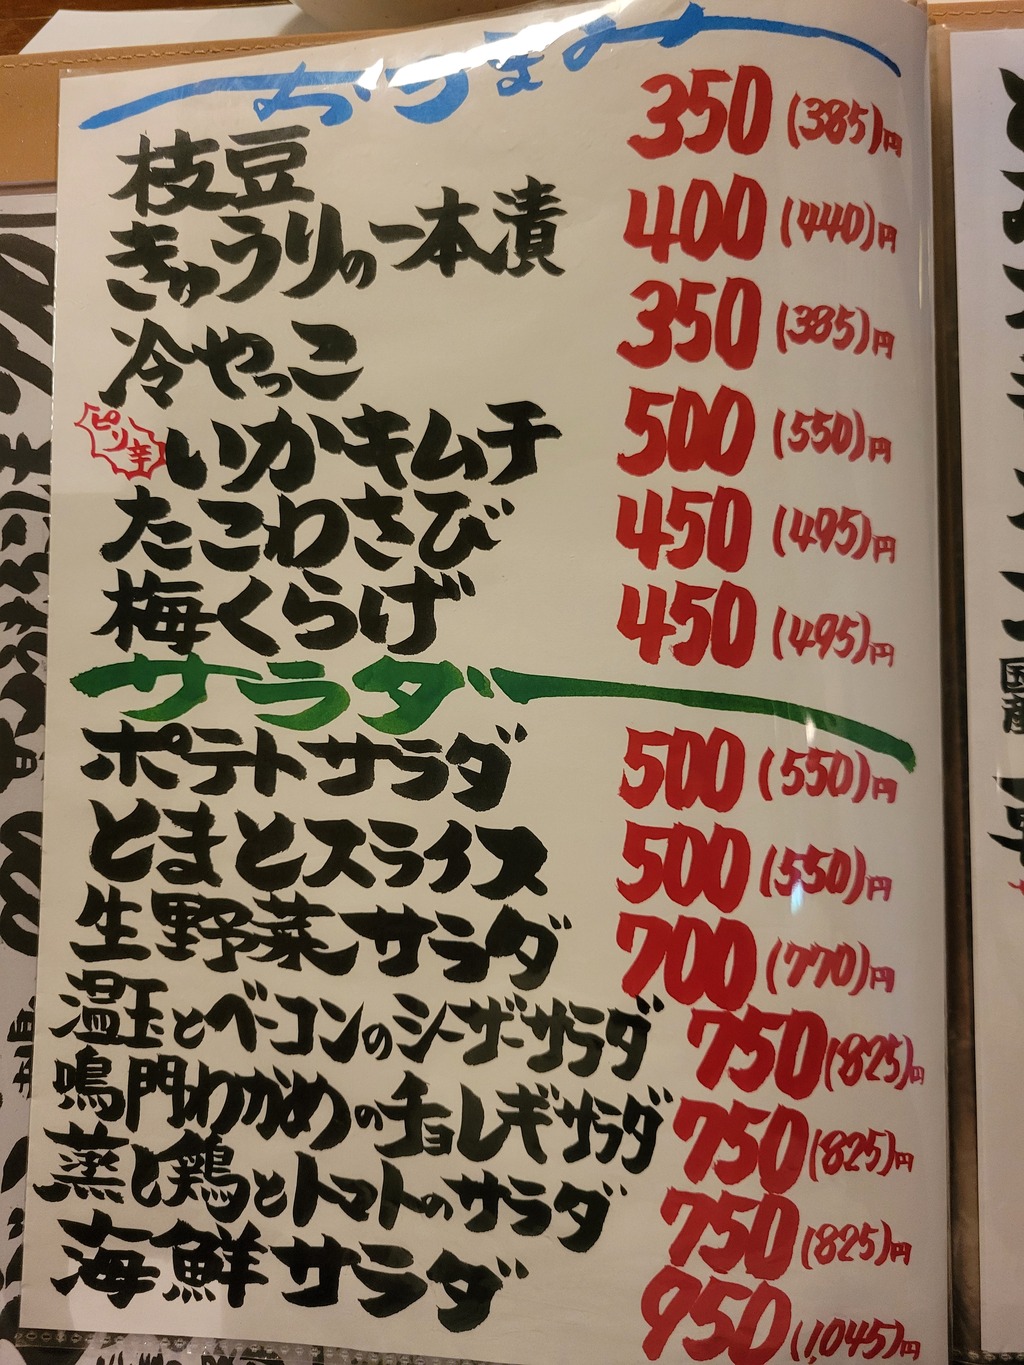 おつまみ
枝豆 350 (385)円
きゅうりの一本漬 400 (440)円
冷やっこ 350 (385)円
ピリ辛 いかキムチ 500 (550)円
たこわさび 450 (495)円
梅くらげ 450 (495)円
サラダ
ポテトサラダ 500 (550)円
とまとスライス 500 (550)円
生野菜サラダ 700 (770)円
温玉とベーコンのシーザーサラダ 750 (825)円
鳴門わかめのチョレギサラダ 750 (825)円
蒸し鶏とトマトのサラダ 750 (825)円
海鮮サラダ 950 (1,045)円
国産